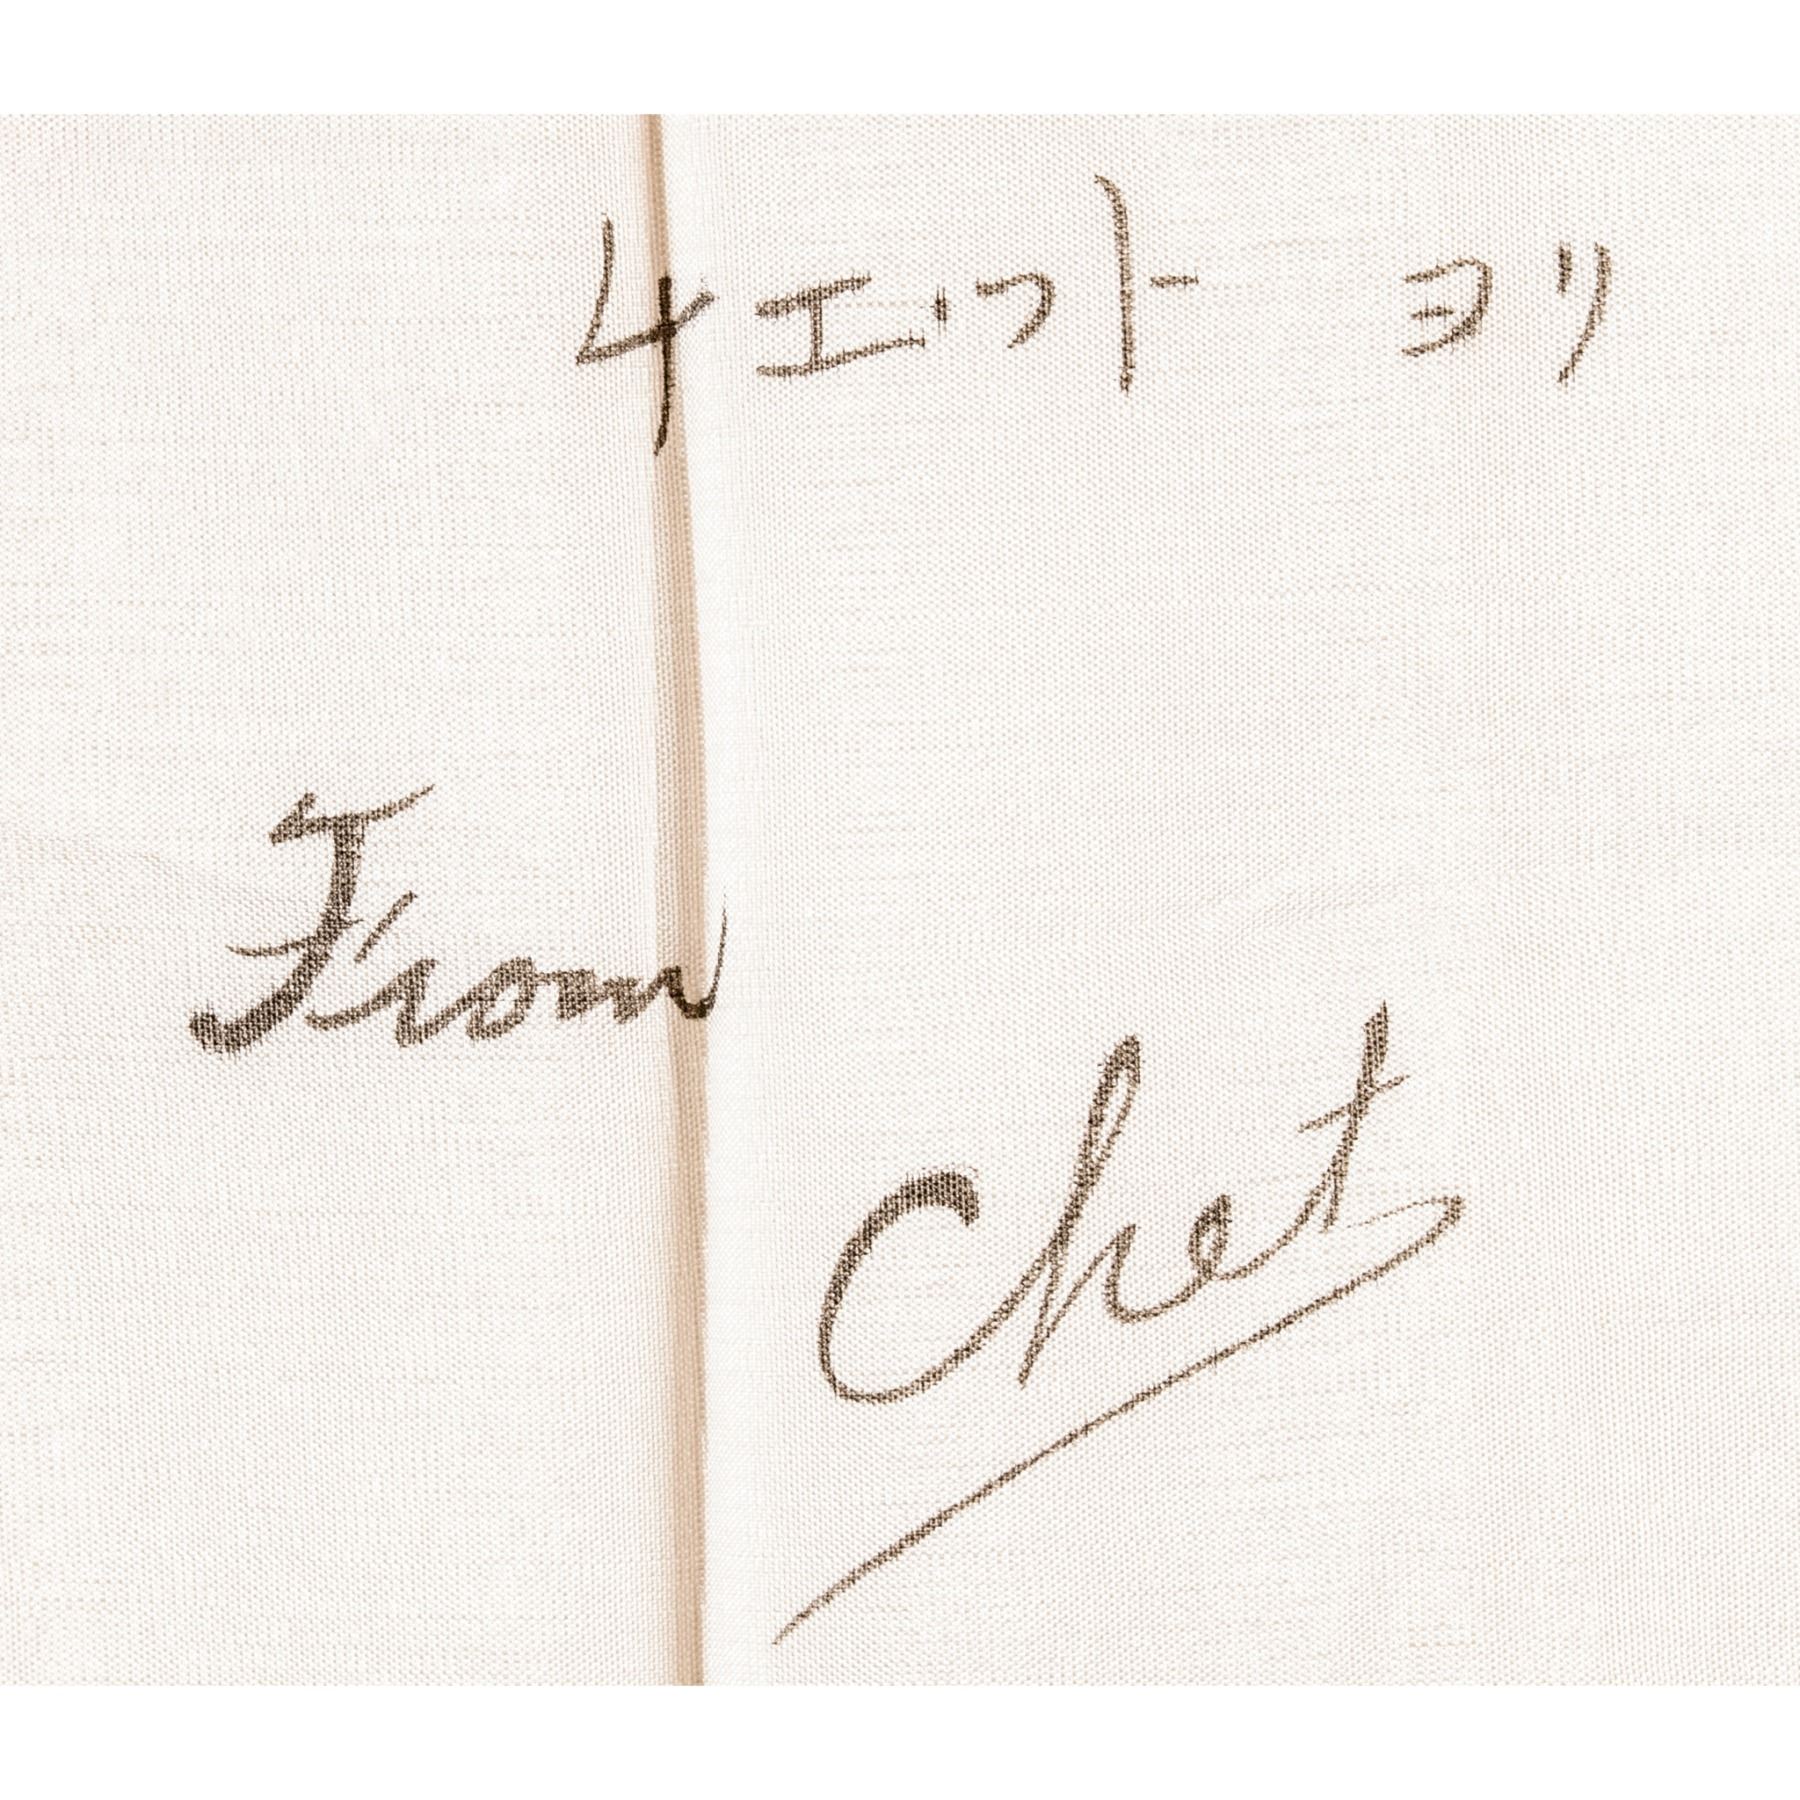 チエット ヨリ
From
Chet